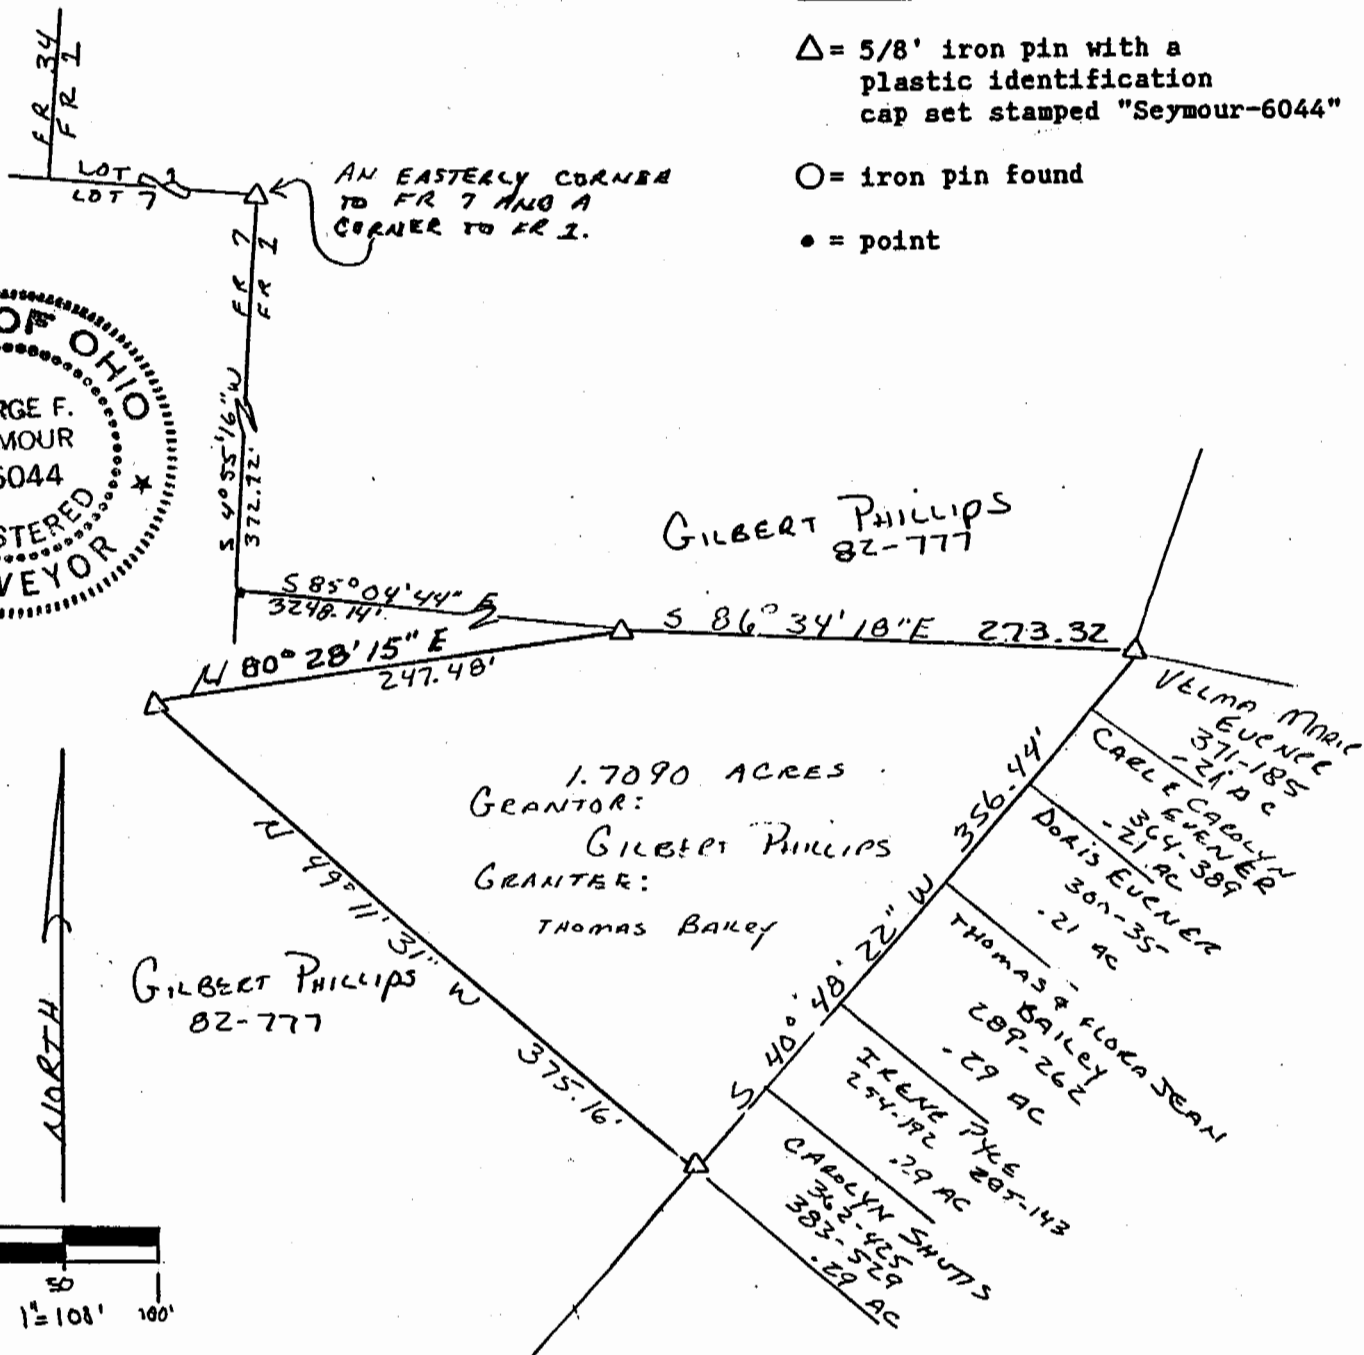 △ = 5/8' iron pin with a
plastic identification
cap set stamped "Seymour-6044"
○ = iron pin found
• = point
FR 34
FR 1
LOT 1
LOT 7
AN EASTERLY CORNER
TO FR 7 AND A
CORNER TO FR 1.
FR 7
FR 1
OF OHIO
RGE F.
MOUR
6044
STERED
VEYOR
S 4° 55' 16" W
372.72'
S 85° 04' 44" E
3248.14'
GILBERT PHILLIPS
82-777
S 86° 34' 18" E 273.32
N 80° 28' 15" E
247.48'
1.7090 ACRES
GRANTOR:
GILBERT PHILLIPS
GRANTEE:
THOMAS BAILEY
N 49° 11' 31" W
375.16'
S 40° 48' 22" W 356.44'
GILBERT PHILLIPS
82-777
VELMA MARIE
EVENER
371-185
.21 AC
CARL & CAROLYN
EVENER
364-389
.21 AC
DORIS EVENER
.21 AC
THOMAS & FLORA JEAN
BAILEY
289-262
.29 AC
IRENE PYLE
254-192 285-143
.29 AC
CAROLYN SHUTTS
362-425
383-529
.29 AC
NORTH
50
100'
1"=100'